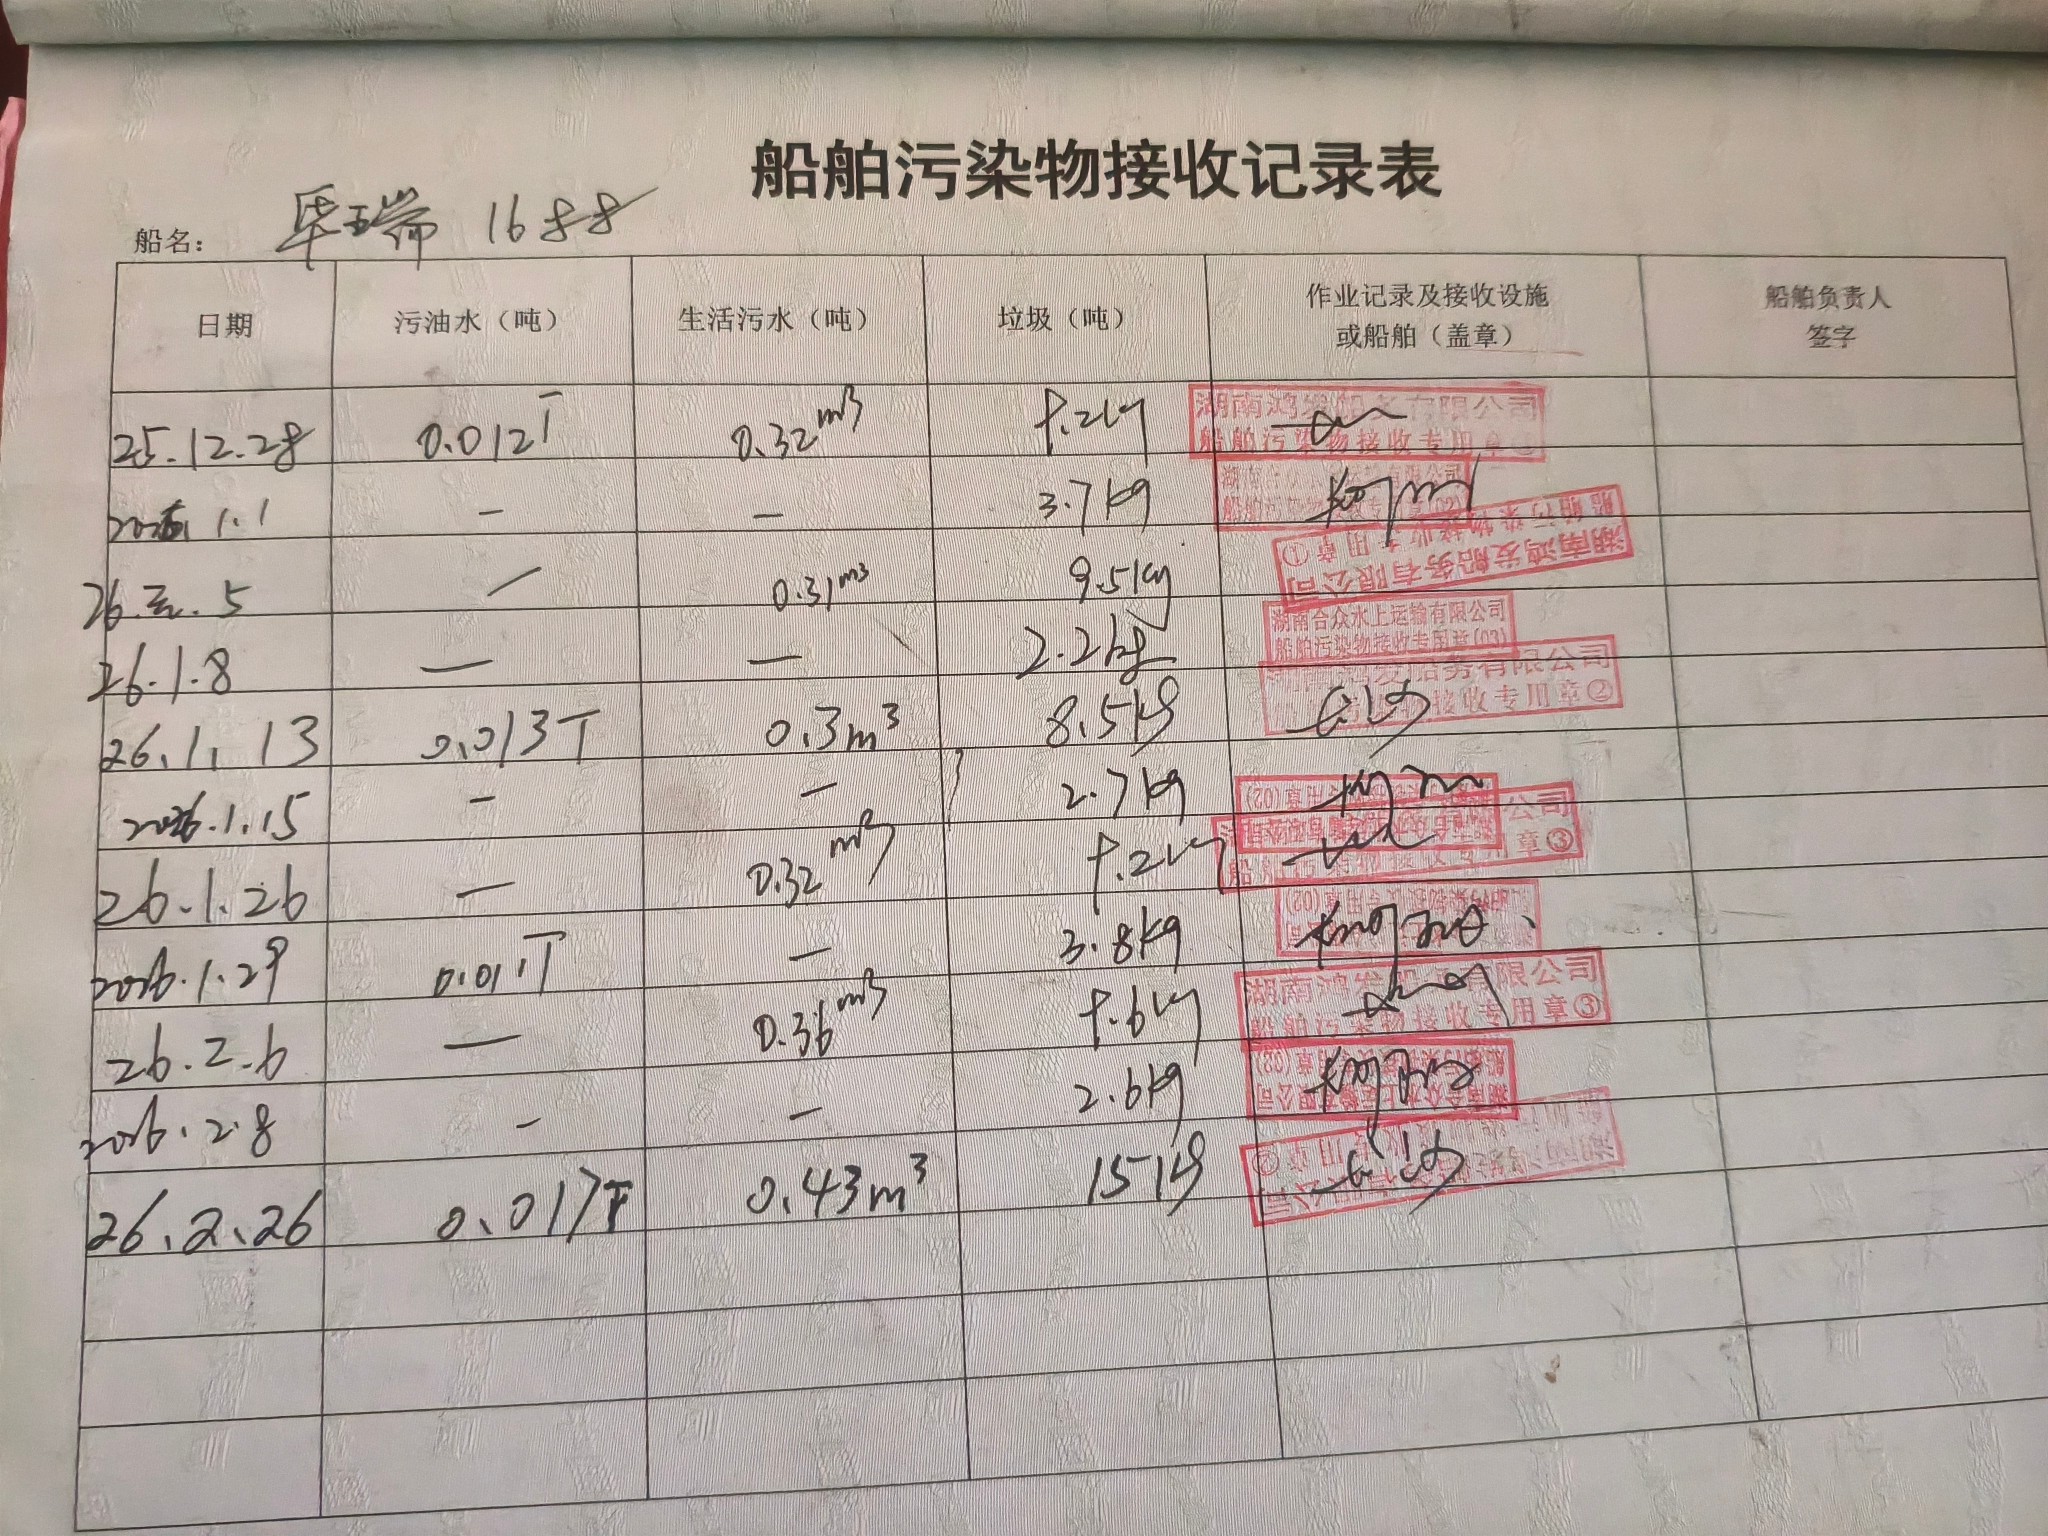 船舶污染物接收记录表
船名: 华瑞 1688
日期 污油水（吨） 生活污水（吨） 垃圾（吨） 作业记录及接收设施或船舶（盖章） 船舶负责人签字
25.12.28 0.012T 0.32m³ 湖南鸿发船务有限公司 船舶污染物接收专用章
1.1 — — 3.7kg
26. 5 — 0.31m³ 9.5kg 湖南鸿发船务有限公司 船舶污染物接收专用章①
26.1.8 — — 2.2kg 湖南合众水上运输有限公司 船舶污染物接收专用章(03)
26.1.13 0.013T 0.3m³ 8.5kg 船务有限公司 接收专用章②
2026.1.15 — — 2.7kg 专用章(02)
26.1.26 — 0.32m³ 公司 船舶污染物接收专用章③
2026.1.29 0.01T — 3.8kg
26.2.6 — 0.36m³ 湖南鸿发船务有限公司 船舶污染物接收专用章③
2026.2.8 — — 2.6kg 湖南合众水上运输有限公司
26.2.26 0.017T 0.43m³ 15kg